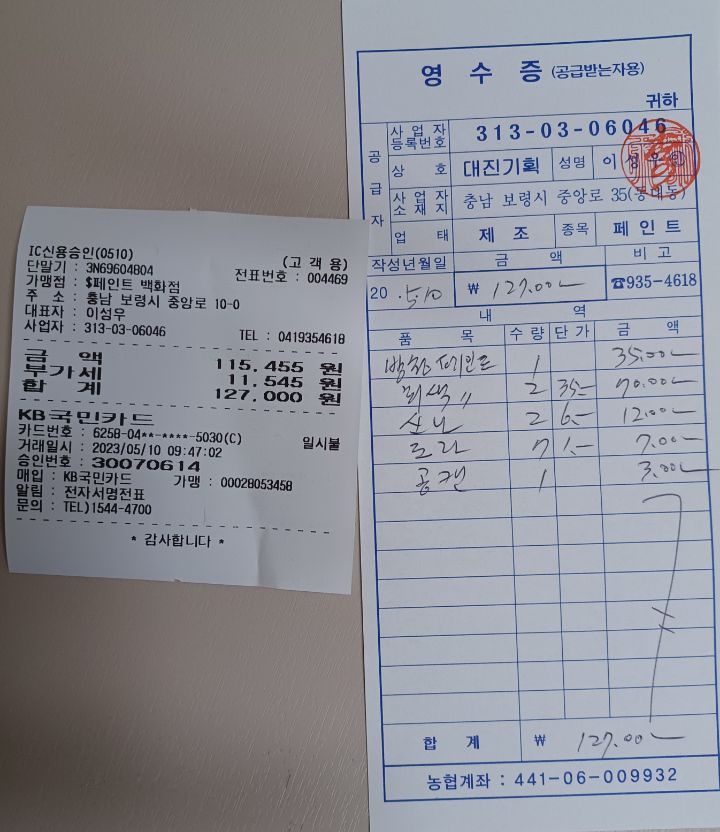 IC신용승인(0510)
(고 객 용)
단말기 : 3N69604804
전표번호 : 004469
가맹점 : $페인트 백화점
주 소 : 충남 보령시 중앙로 10-0
대표자 : 이성우
사업자 : 313-03-06046
TEL : 0419354618
금 액 115,455 원
부가세 11,545 원
합 계 127,000 원
KB국민카드
카드번호 : 6258-04**-****-5030(C)
일시불
거래일시 : 2023/05/10 09:47:02
승인번호 : 30070614
매입 : KB국민카드 가맹 : 00028053458
알림 : 전자서명전표
문의 : TEL)1544-4700
* 감사합니다 *
영 수 증 (공급받는자용)
귀하
공급자
사업자등록번호 313-03-06046
상 호 대진기획 성명 이성우 ㊞
사업자소재지 충남 보령시 중앙로 35(동대동)
업 태 제 조 종목 페인트
작성년월일 금 액 비 고
20 .5.10 ₩ 127.00 ☎935-4618
내 역
품 목 수 량 단 가 금 액
방청페인트 1 35.00
회색 〃 2 35.- 70.00
신나 2 6.- 12.00
로라 7 1.- 7.00
공캔 1 3.00
합 계 ₩ 127.00
농협계좌 : 441-06-009932